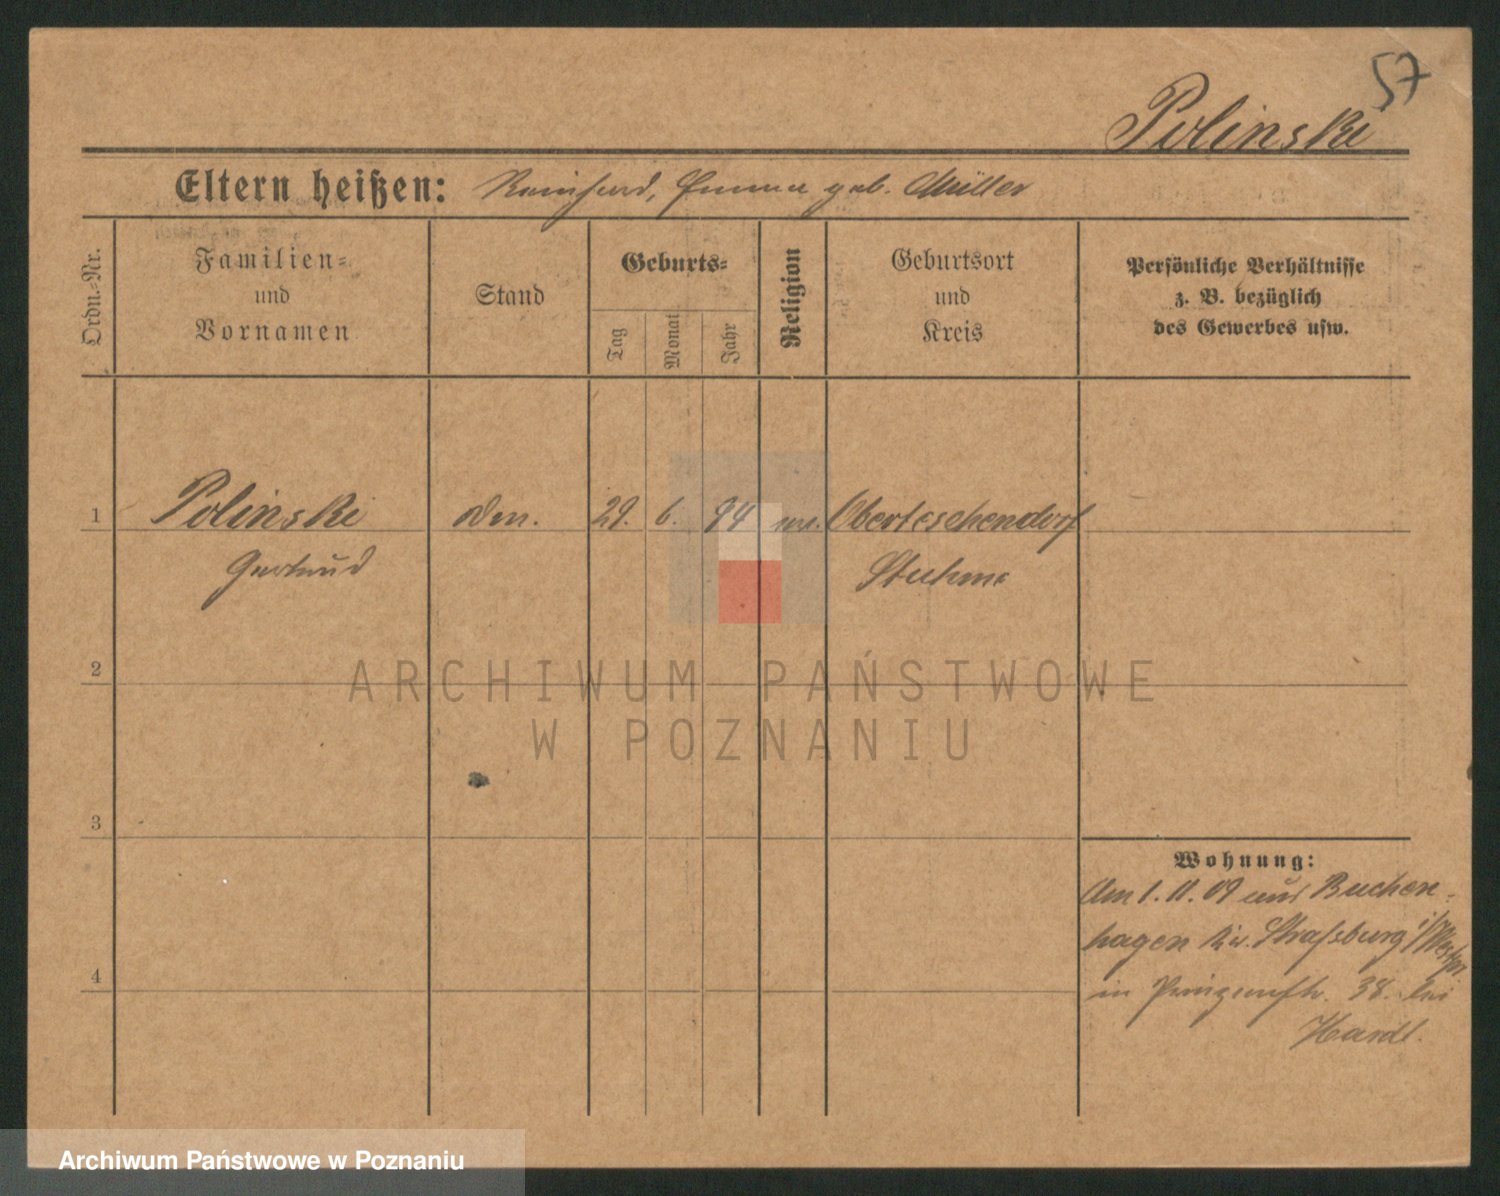 57
Polinski
Eltern heißen: Reinhard, Emma geb. Müller
Ordn.-Nr.
Familien-
und
Vornamen
Stand
Geburts-
Tag
Monat
Jahr
Religion
Geburtsort
und
Kreis
Persönliche Verhältnisse
z. B. bezüglich
des Gewerbes usw.
1 Polinski 29. 6. 94 Oberteschendorf
Gertrud Stuhm
2
3
4
Wohnung:
Am 1. 11. 09 aus Buchen-
hagen Kr. Strasburg i/Westpr
in Prinzenstr. 38. bei
Hardt.
ARCHIWUM PAŃSTWOWE
W POZNANIU
Archiwum Państwowe w Poznaniu